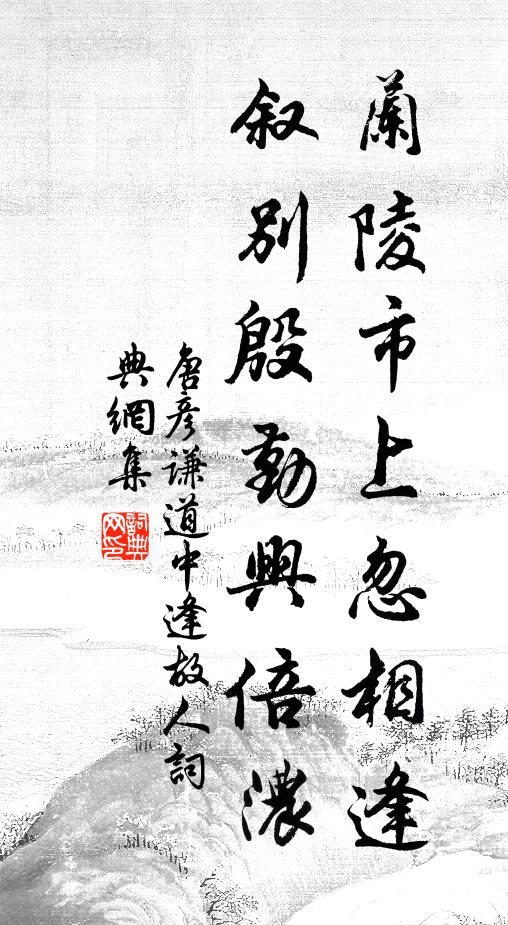 蘭陵市上忽相逢
叙別殷勤興倍濃
唐彦謙道中逢故人詞
典網集
詞典
网印